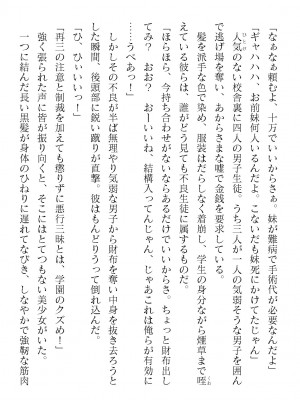 「なぁなぁ頼むよ、十万でいいからさぁ。妹が難病で手術代が必要なんだよ」
「ギャハハハ、お前妹何人いるんだよ。こないだも妹死にかけてたじゃん」
人気のない校舎裏に四人の男子生徒。うち三人が一人の気弱そうな男子を囲ん
で逃げ場を奪い、あからさまな嘘で金銭を要求している。
髪を派手な色で染め、服装はだらしなく着崩し、学生の身分ながら煙草まで咥
えている彼らは、誰がどう見ても不良生徒に属するものだ。
「ほらほら、今持ち合わせがないならあるだけでいいからさ。ちょっと財布出し
てみ？　おお？　おーいいね、結構入ってんじゃん、じゃあこれは俺らが有功に
……うべあっ！」
しかしその不良が半ば無理やり気弱な男子から財布を奪い中身を抜き去ろうと
した瞬間、後頭部に鋭い蹴りが直撃。彼はもんどりうって倒れ込んだ。
「ひ、ひいいいっ！」
「再三の注意と制裁を加えても懲りずに悪行三昧とは、学園のクズめ！」
強く張られた声に皆が振り向くと、そこにはとてつもない美少女がいた。
一つに結んだ長い黒髪が身体のひねりに遅れてなびき、しなやかで強靭な筋肉